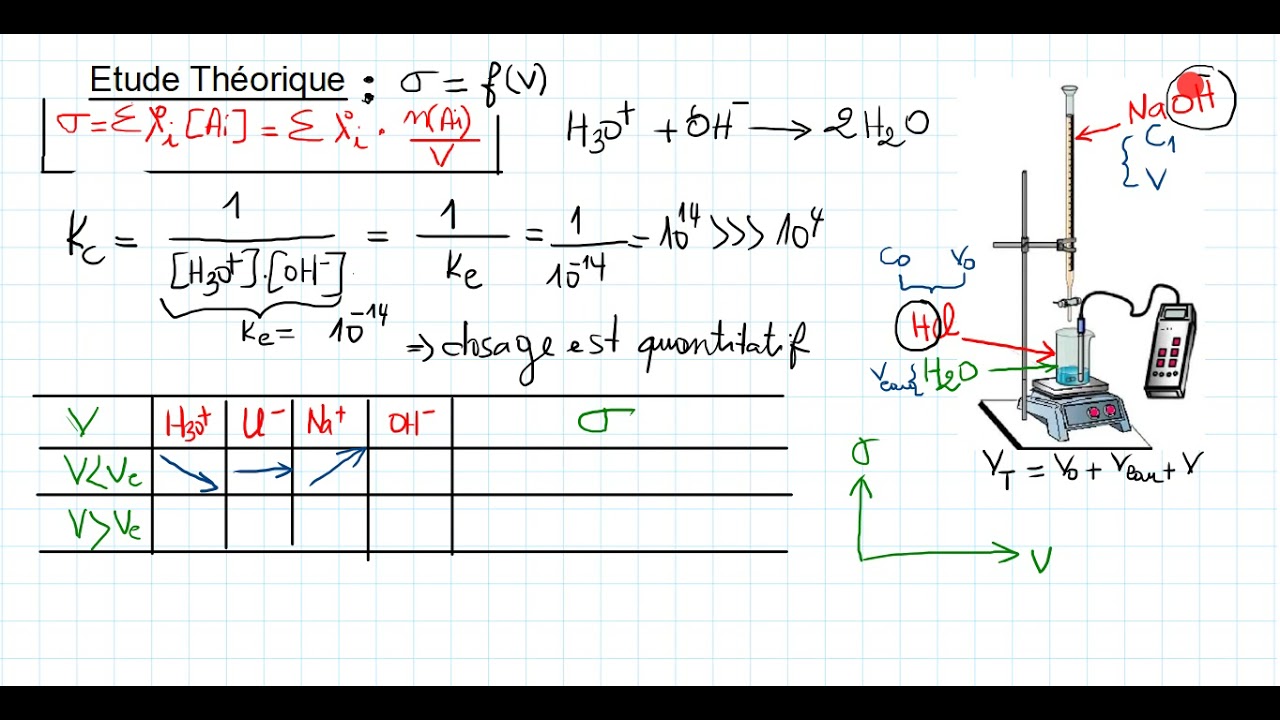 Etude Théorique : σ = f(V)
σ = Σ λi [Ai] = Σ λi . n(Ai)/V
H3O+ + OH- → 2H2O
Kc = 1/([H3O+].[OH-]) = 1/Ke = 1/10^-14 = 10^14 >>> 10^4
Ke = 10^-14
⇒ dosage est quantitatif
V H3O+ Cl- Na+ OH- σ
V<Ve ↘ → ↗
V>Ve
NaOH
C1
V
Co Vo
HCl
Veau { H2O
VT = Vo + Veau + V
σ
V